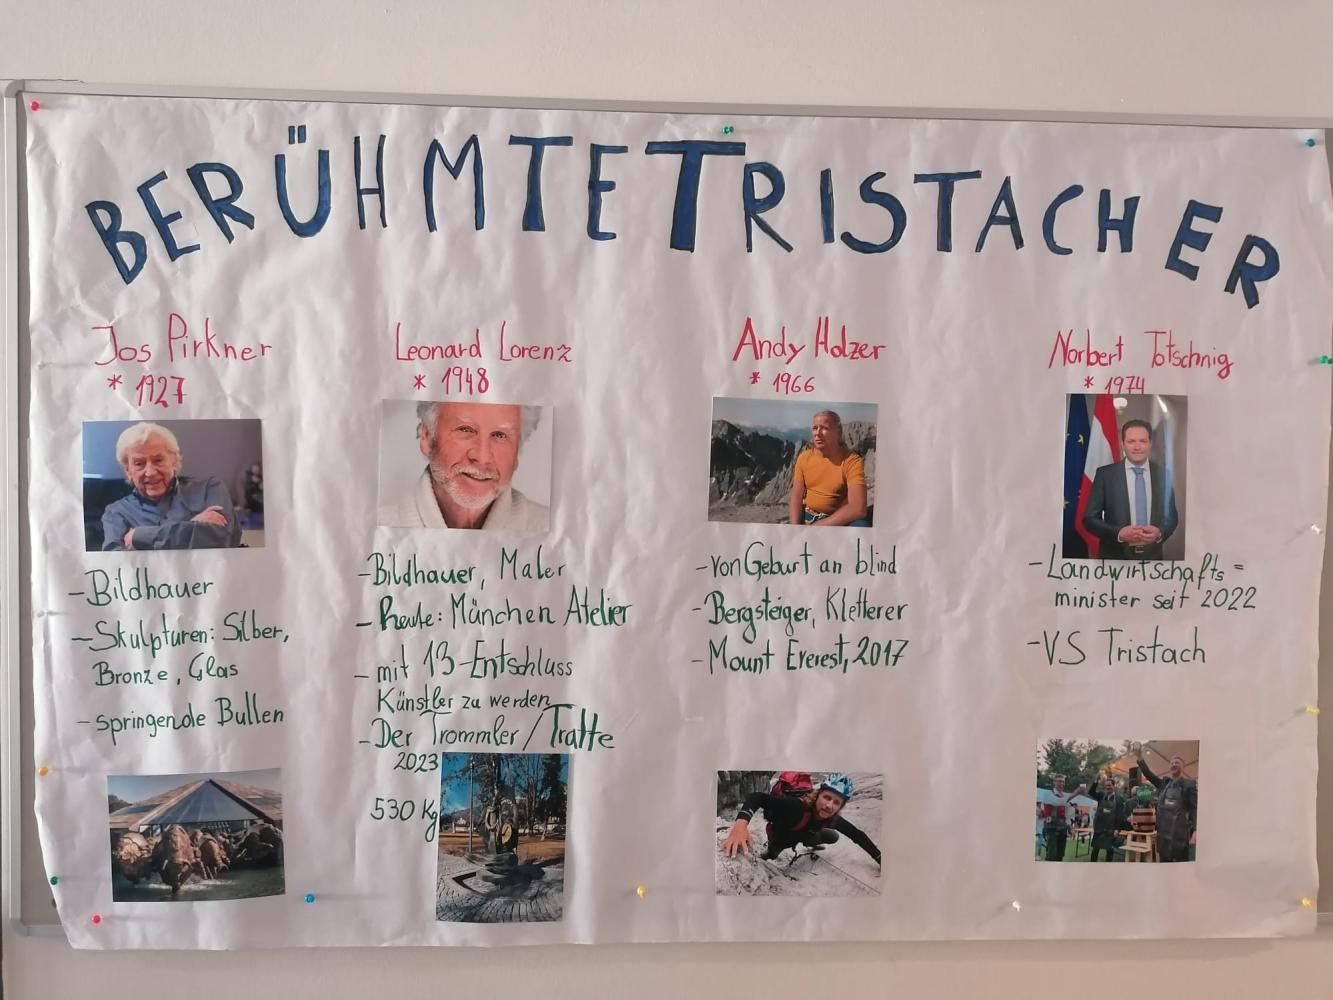 BERÜHMTE TRISTACHER
Jos Pirkner
* 1927
- Bildhauer
- Skulpturen: Silber,
Bronze, Glas
- springende Bullen
Leonard Lorenz
* 1948
- Bildhauer, Maler
- heute: München Atelier
- mit 13-Entschluss
Künstler zu werden
- Der Trommler / Tratte
2023
530 Kg
Andy Holzer
* 1966
- von Geburt an blind
- Bergsteiger, Kletterer
- Mount Everest, 2017
Norbert Totschnig
* 1974
- Landwirtschafts =
minister seit 2022
- VS Tristach